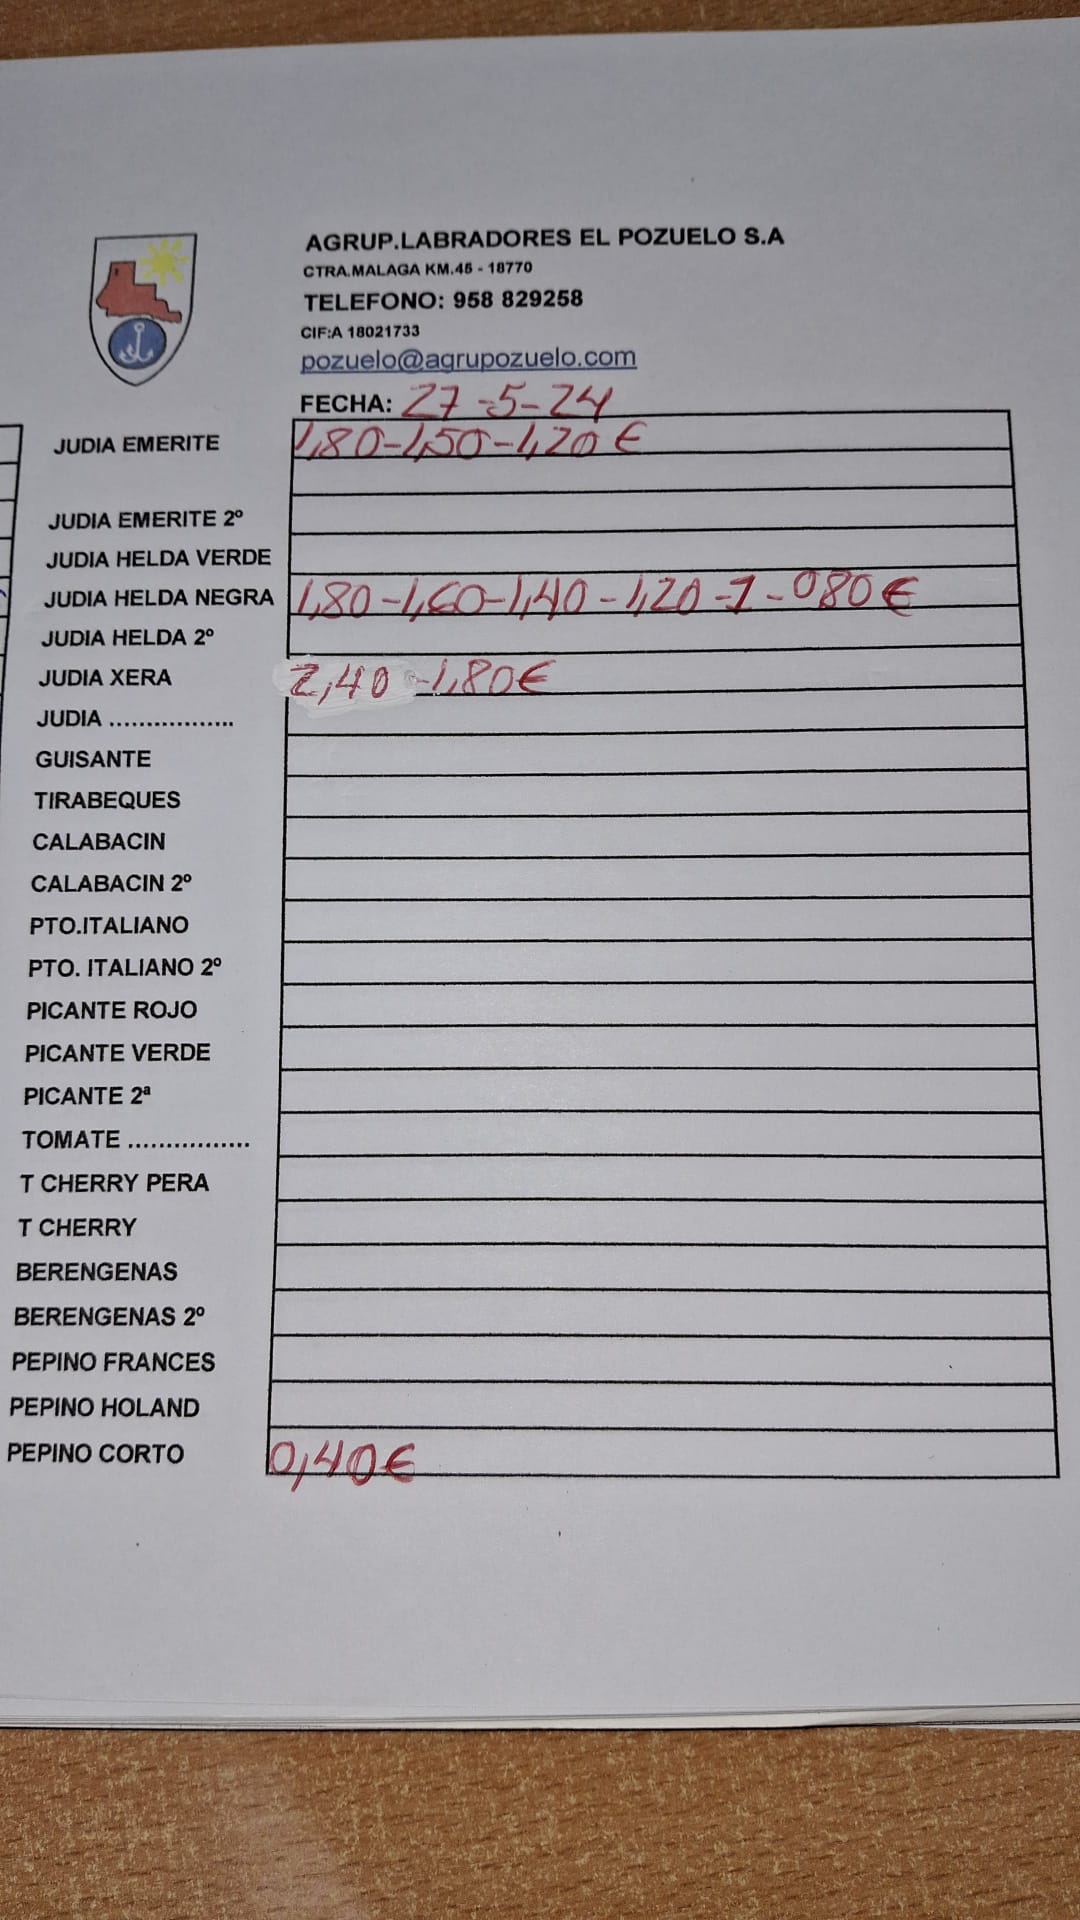 AGRUP.LABRADORES EL POZUELO S.A
CTRA.MALAGA KM.45 - 18770
TELEFONO: 958 829258
CIF:A 18021733
pozuelo@agrupozuelo.com
FECHA: 27-5-24
JUDIA EMERITE 1,80-1,50-1,20€
JUDIA EMERITE 2º
JUDIA HELDA VERDE
JUDIA HELDA NEGRA 1,80-1,60-1,40-1,20-1-080€
JUDIA HELDA 2º
JUDIA XERA 2,40-1,80€
JUDIA .................
GUISANTE
TIRABEQUES
CALABACIN
CALABACIN 2º
PTO.ITALIANO
PTO. ITALIANO 2º
PICANTE ROJO
PICANTE VERDE
PICANTE 2ª
TOMATE ................
T CHERRY PERA
T CHERRY
BERENGENAS
BERENGENAS 2º
PEPINO FRANCES
PEPINO HOLAND
PEPINO CORTO 0,40€